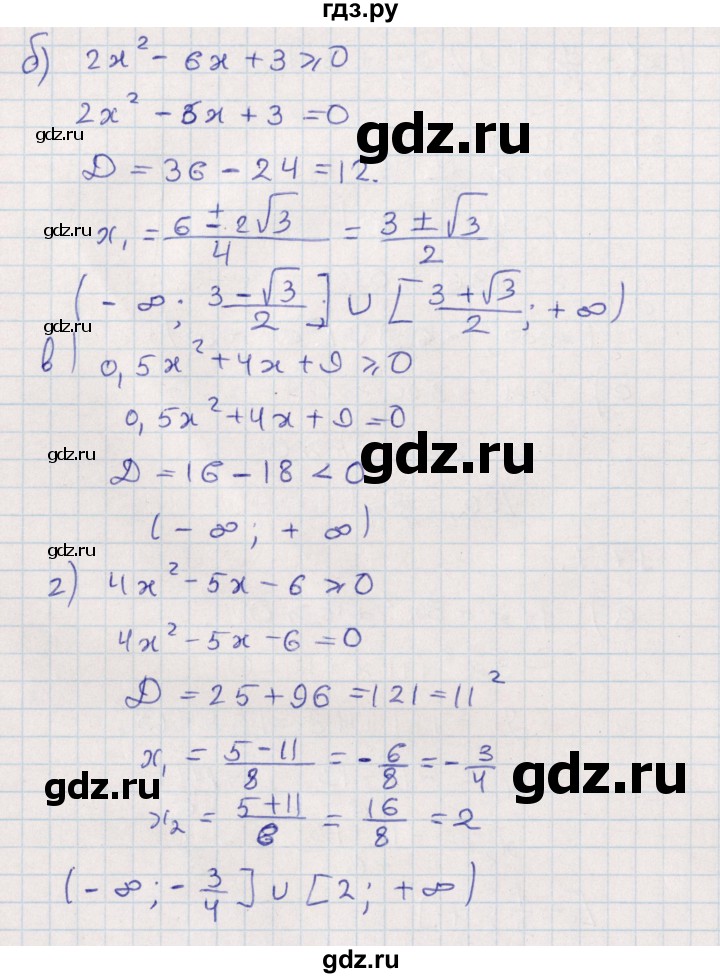 гдз.ру
б) 2x² - 6x + 3 ⩾ 0
2x² - 6x + 3 = 0
gdz.ru
gdz.ru
Д = 36 - 24 = 12.
gdz.ru
x₁ = (6 ± 2√3)/4 = (3 ± √3)/2
(-∞; (3-√3)/2] ∪ [(3+√3)/2; +∞)
gdz.ru
в) 0,5x² + 4x + 9 ⩾ 0
0,5x² + 4x + 9 = 0
gdz.ru
gdz.ru
Д = 16 - 18 < 0
(-∞; +∞)
gdz.ru
г) 4x² - 5x - 6 ⩾ 0
4x² - 5x - 6 = 0
Д = 25 + 96 = 121 = 11²
x₁ = (5-11)/8 = -6/8 = -3/4
gdz.ru
gdz.ru
x₂ = (5+11)/8 = 16/8 = 2
(-∞; -3/4] ∪ [2; +∞)
gdz.ru